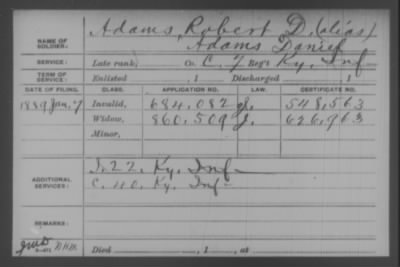 Adams, Robert D. (alias)
NAME OF SOLDIER: Adams Daniel
SERVICE: Late rank, Co. C. 7 Reg't Ky. Inf
TERM OF SERVICE: Enlisted , 1 Discharged , 1
DATE OF FILING. CLASS. APPLICATION NO. LAW. CERTIFICATE NO.
1889 Jan. 7 Invalid, 684,082 J. 548,563
Widow, 860,509 J. 626,963
Minor,
ADDITIONAL SERVICES: I. 22. Ky. Inf
C. 40. Ky. Inf
REMARKS:
Died , 1 , at